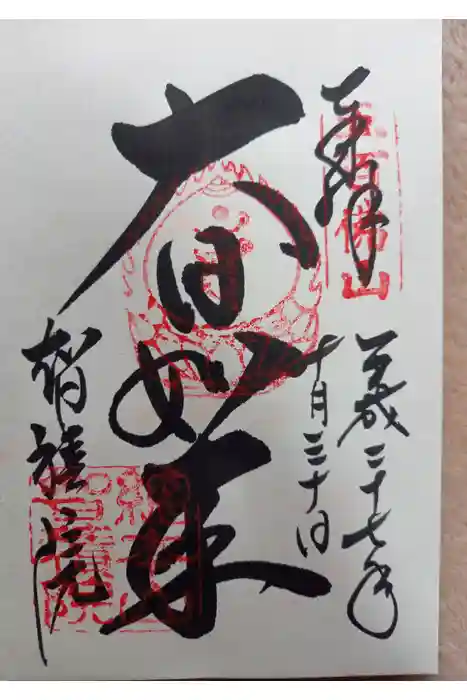 奉拝
五百佛山
平成二十七年
十月三十日
大日如来
智積院